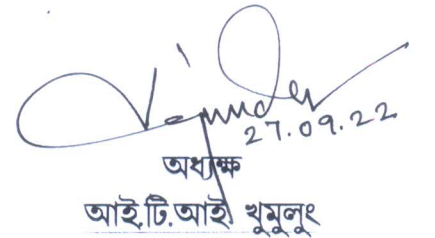 27.09.22
অধ্যক্ষ
আই.টি.আই. খুমুলুং